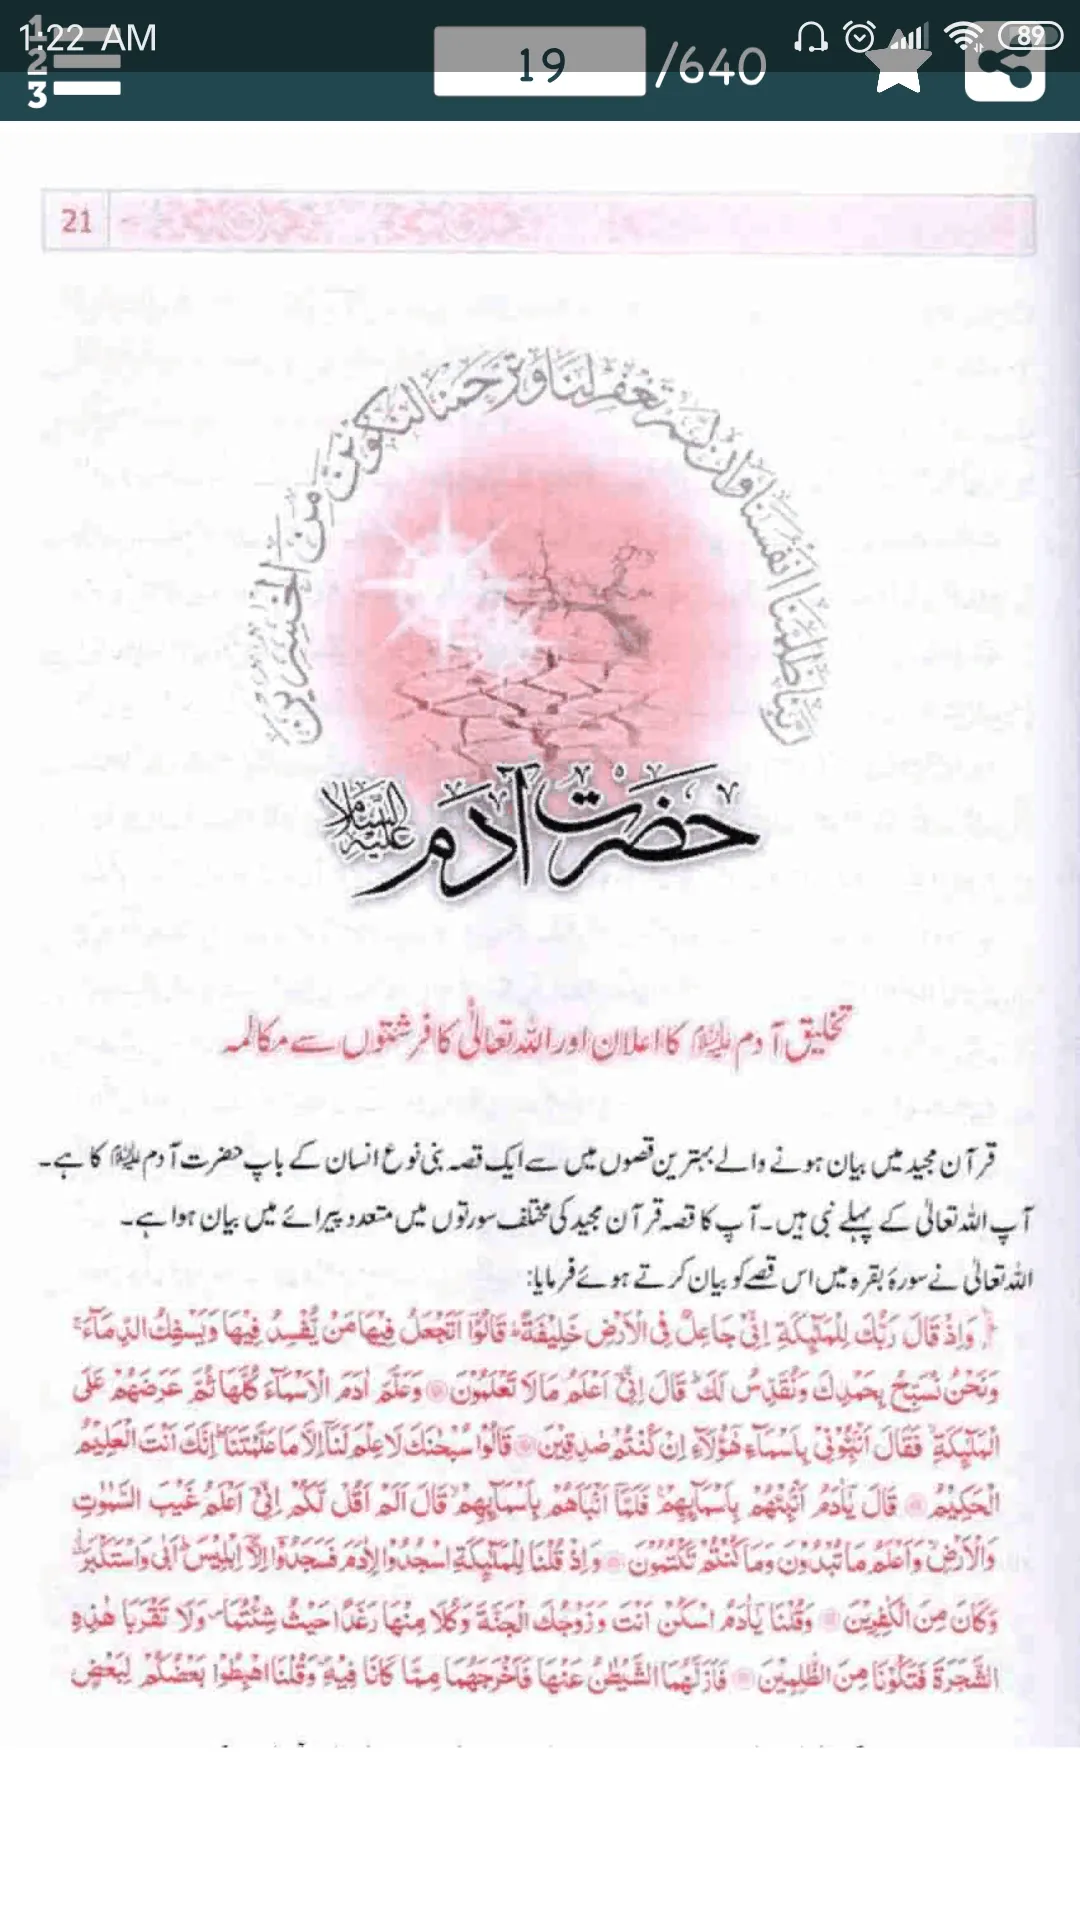 1:22 AM
89
1
2
3
19 /640
21
ربنا ظلمنا انفسنا وان لم تغفر لنا وترحمنا لنكونن من الخسرين
حضرت آدم علیہ السلام
تخلیق آدم علیہ السلام کا اعلان اور اللہ تعالیٰ کا فرشتوں سے مکالمہ
قرآن مجید میں بیان ہونے والے بہترین قصوں میں سے ایک قصہ بنی نوع انسان کے باپ حضرت آدم علیہ السلام کا ہے۔
آپ اللہ تعالیٰ کے پہلے نبی ہیں۔ آپ کا قصہ قرآن مجید کی مختلف سورتوں میں متعدد پیرائے میں بیان ہوا ہے۔
اللہ تعالیٰ نے سورۂ بقرہ میں اس قصے کو بیان کرتے ہوئے فرمایا:
﴿ وَاِذْ قَالَ رَبُّكَ لِلْمَلٰٓىِٕكَةِ اِنِّیْ جَاعِلٌ فِی الْاَرْضِ خَلِیْفَةً ؕ قَالُوْۤا اَتَجْعَلُ فِیْهَا مَنْ یُّفْسِدُ فِیْهَا وَیَسْفِكُ الدِّمَآءَ ۚ
وَنَحْنُ نُسَبِّحُ بِحَمْدِكَ وَنُقَدِّسُ لَكَ ؕ قَالَ اِنِّیْۤ اَعْلَمُ مَا لَا تَعْلَمُوْنَ ۝ وَعَلَّمَ اٰدَمَ الْاَسْمَآءَ كُلَّهَا ثُمَّ عَرَضَهُمْ عَلَی
الْمَلٰٓىِٕكَةِ ۙ فَقَالَ اَنْۢبِـُٔوْنِیْ بِاَسْمَآءِ هٰۤؤُلَآءِ اِنْ كُنْتُمْ صٰدِقِیْنَ ۝ قَالُوْا سُبْحٰنَكَ لَا عِلْمَ لَنَاۤ اِلَّا مَا عَلَّمْتَنَا ؕ اِنَّكَ اَنْتَ الْعَلِیْمُ
الْحَكِیْمُ ۝ قَالَ یٰۤاٰدَمُ اَنْۢبِئْهُمْ بِاَسْمَآىِٕهِمْ ۚ فَلَمَّاۤ اَنْۢبَاَهُمْ بِاَسْمَآىِٕهِمْ ۙ قَالَ اَلَمْ اَقُلْ لَّكُمْ اِنِّیْۤ اَعْلَمُ غَیْبَ السَّمٰوٰتِ
وَالْاَرْضِ ۙ وَاَعْلَمُ مَا تُبْدُوْنَ وَمَا كُنْتُمْ تَكْتُمُوْنَ ۝ وَاِذْ قُلْنَا لِلْمَلٰٓىِٕكَةِ اسْجُدُوْا لِاٰدَمَ فَسَجَدُوْۤا اِلَّاۤ اِبْلِیْسَ ؕ اَبٰی وَاسْتَكْبَرَ ۗ
وَكَانَ مِنَ الْكٰفِرِیْنَ ۝ وَقُلْنَا یٰۤاٰدَمُ اسْكُنْ اَنْتَ وَزَوْجُكَ الْجَنَّةَ وَكُلَا مِنْهَا رَغَدًا حَیْثُ شِئْتُمَا ۪ وَلَا تَقْرَبَا هٰذِهِ
الشَّجَرَةَ فَتَكُوْنَا مِنَ الظّٰلِمِیْنَ ۝ فَاَزَلَّهُمَا الشَّیْطٰنُ عَنْهَا فَاَخْرَجَهُمَا مِمَّا كَانَا فِیْهِ ۪ وَقُلْنَا اهْبِطُوْا بَعْضُكُمْ لِبَعْضٍ